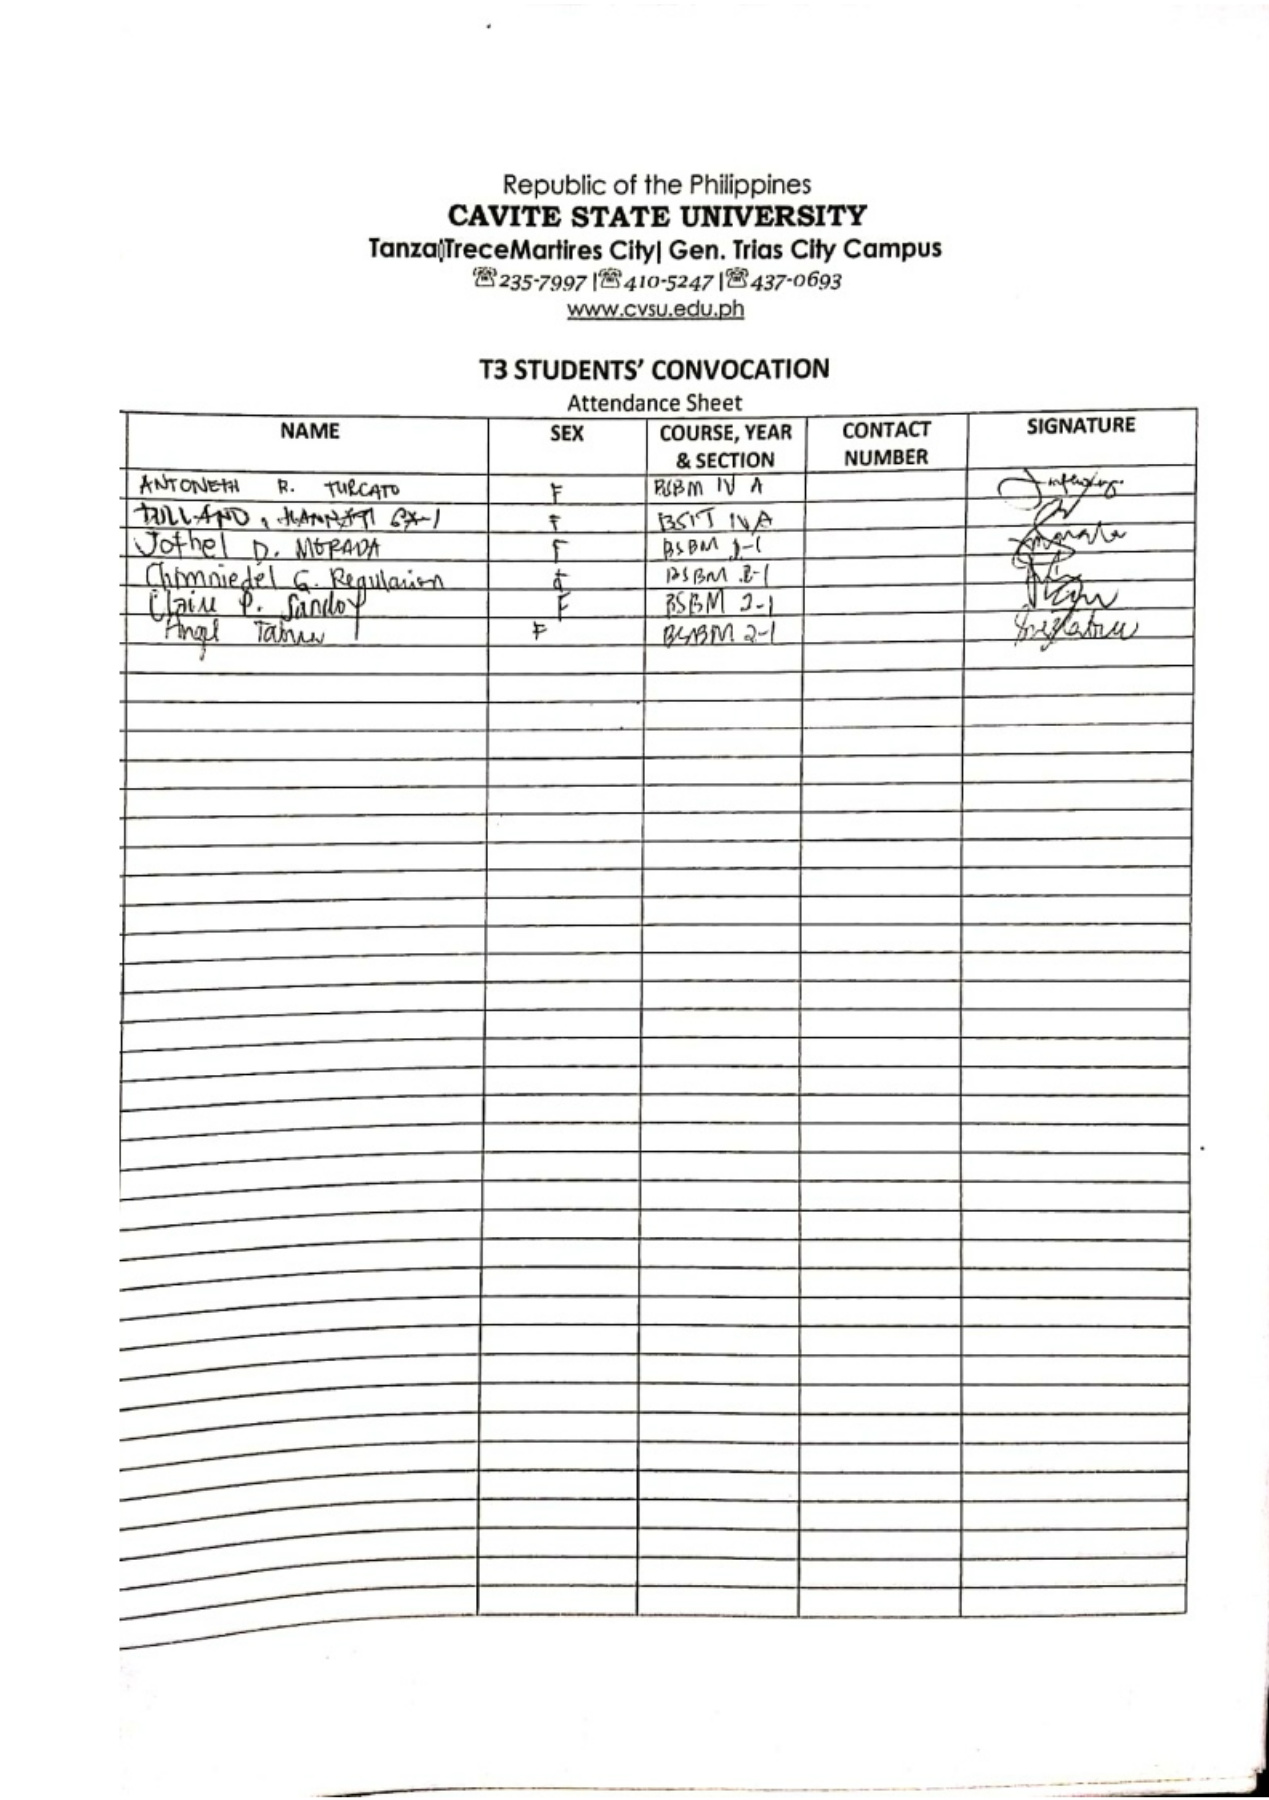 Republic of the Philippines
CAVITE STATE UNIVERSITY
Tanza|TreceMartires City| Gen. Trias City Campus
☏235-7997 |☏410-5247 |☏437-0693
www.cvsu.edu.ph
T3 STUDENTS' CONVOCATION
Attendance Sheet
NAME SEX COURSE, YEAR & SECTION CONTACT NUMBER SIGNATURE
ANTONETH R. TURCATO F BSBM IV A
F BSIT IV A
Jothel D. MORADA F BSBM
Chimniedel G. Regularion F BSBM 2-1
Claire P. Sandoy F BSBM 2-1
Angel F BSBM 2-1